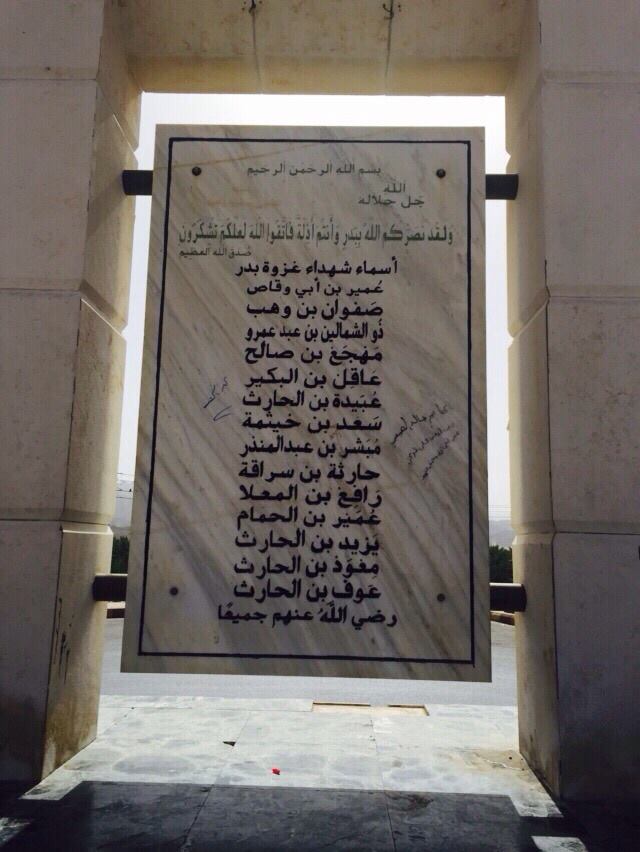 بسم الله الرحمن الرحيم
الله
جل جلاله
ولقد نصركم الله ببدر وأنتم أذلة فاتقوا الله لعلكم تشكرون
صدق الله العظيم
أسماء شهداء غزوة بدر
عُمير بن أبي وقاص
صَفوان بن وهب
ذو الشمالين بن عبد عمرو
مَهْجَعْ بن صالح
عَاقِل بن البكير
عُبَيدة بن الحارث
سَعد بن خيثمة
مُبَشر بن عبدالمنذر
حارثة بن سراقة
رَافِع بن المعلا
عُمَيْر بن الحمام
يَزيد بن الحارث
مِعَوّذ بن الحارث
عَوف بن الحارث
رضي اللَّهُ عنهم جميعًا